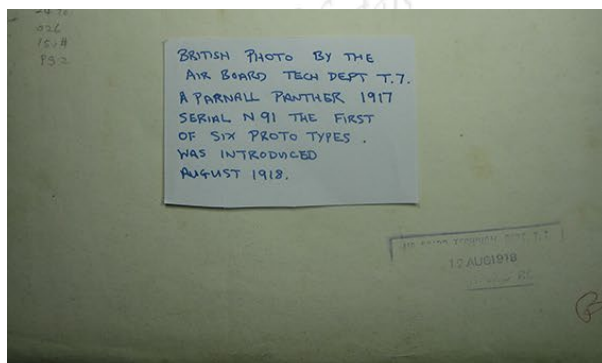 026
BRITISH PHOTO BY THE
AIR BOARD TECH DEPT T.7.
A PARNALL PANTHER 1917
SERIAL N91 THE FIRST
OF SIX PROTO TYPES.
WAS INTRODUCED
AUGUST 1918.
AUG1918